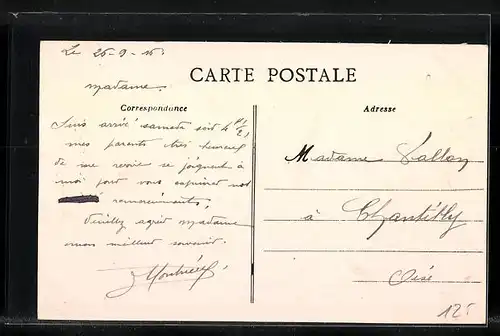 Le 26-9-15.
CARTE POSTALE
Correspondance
Adresse
Madame.
Suis arrivé samedi soir 4h 1/2,
mes parents très heureux
de me revoir se joignent à
moi pour vous exprimer nos
remerciements,
Veuillez agréer madame
mon meilleur souvenir.
Madame Vallon
à Chantilly
Oise
12f